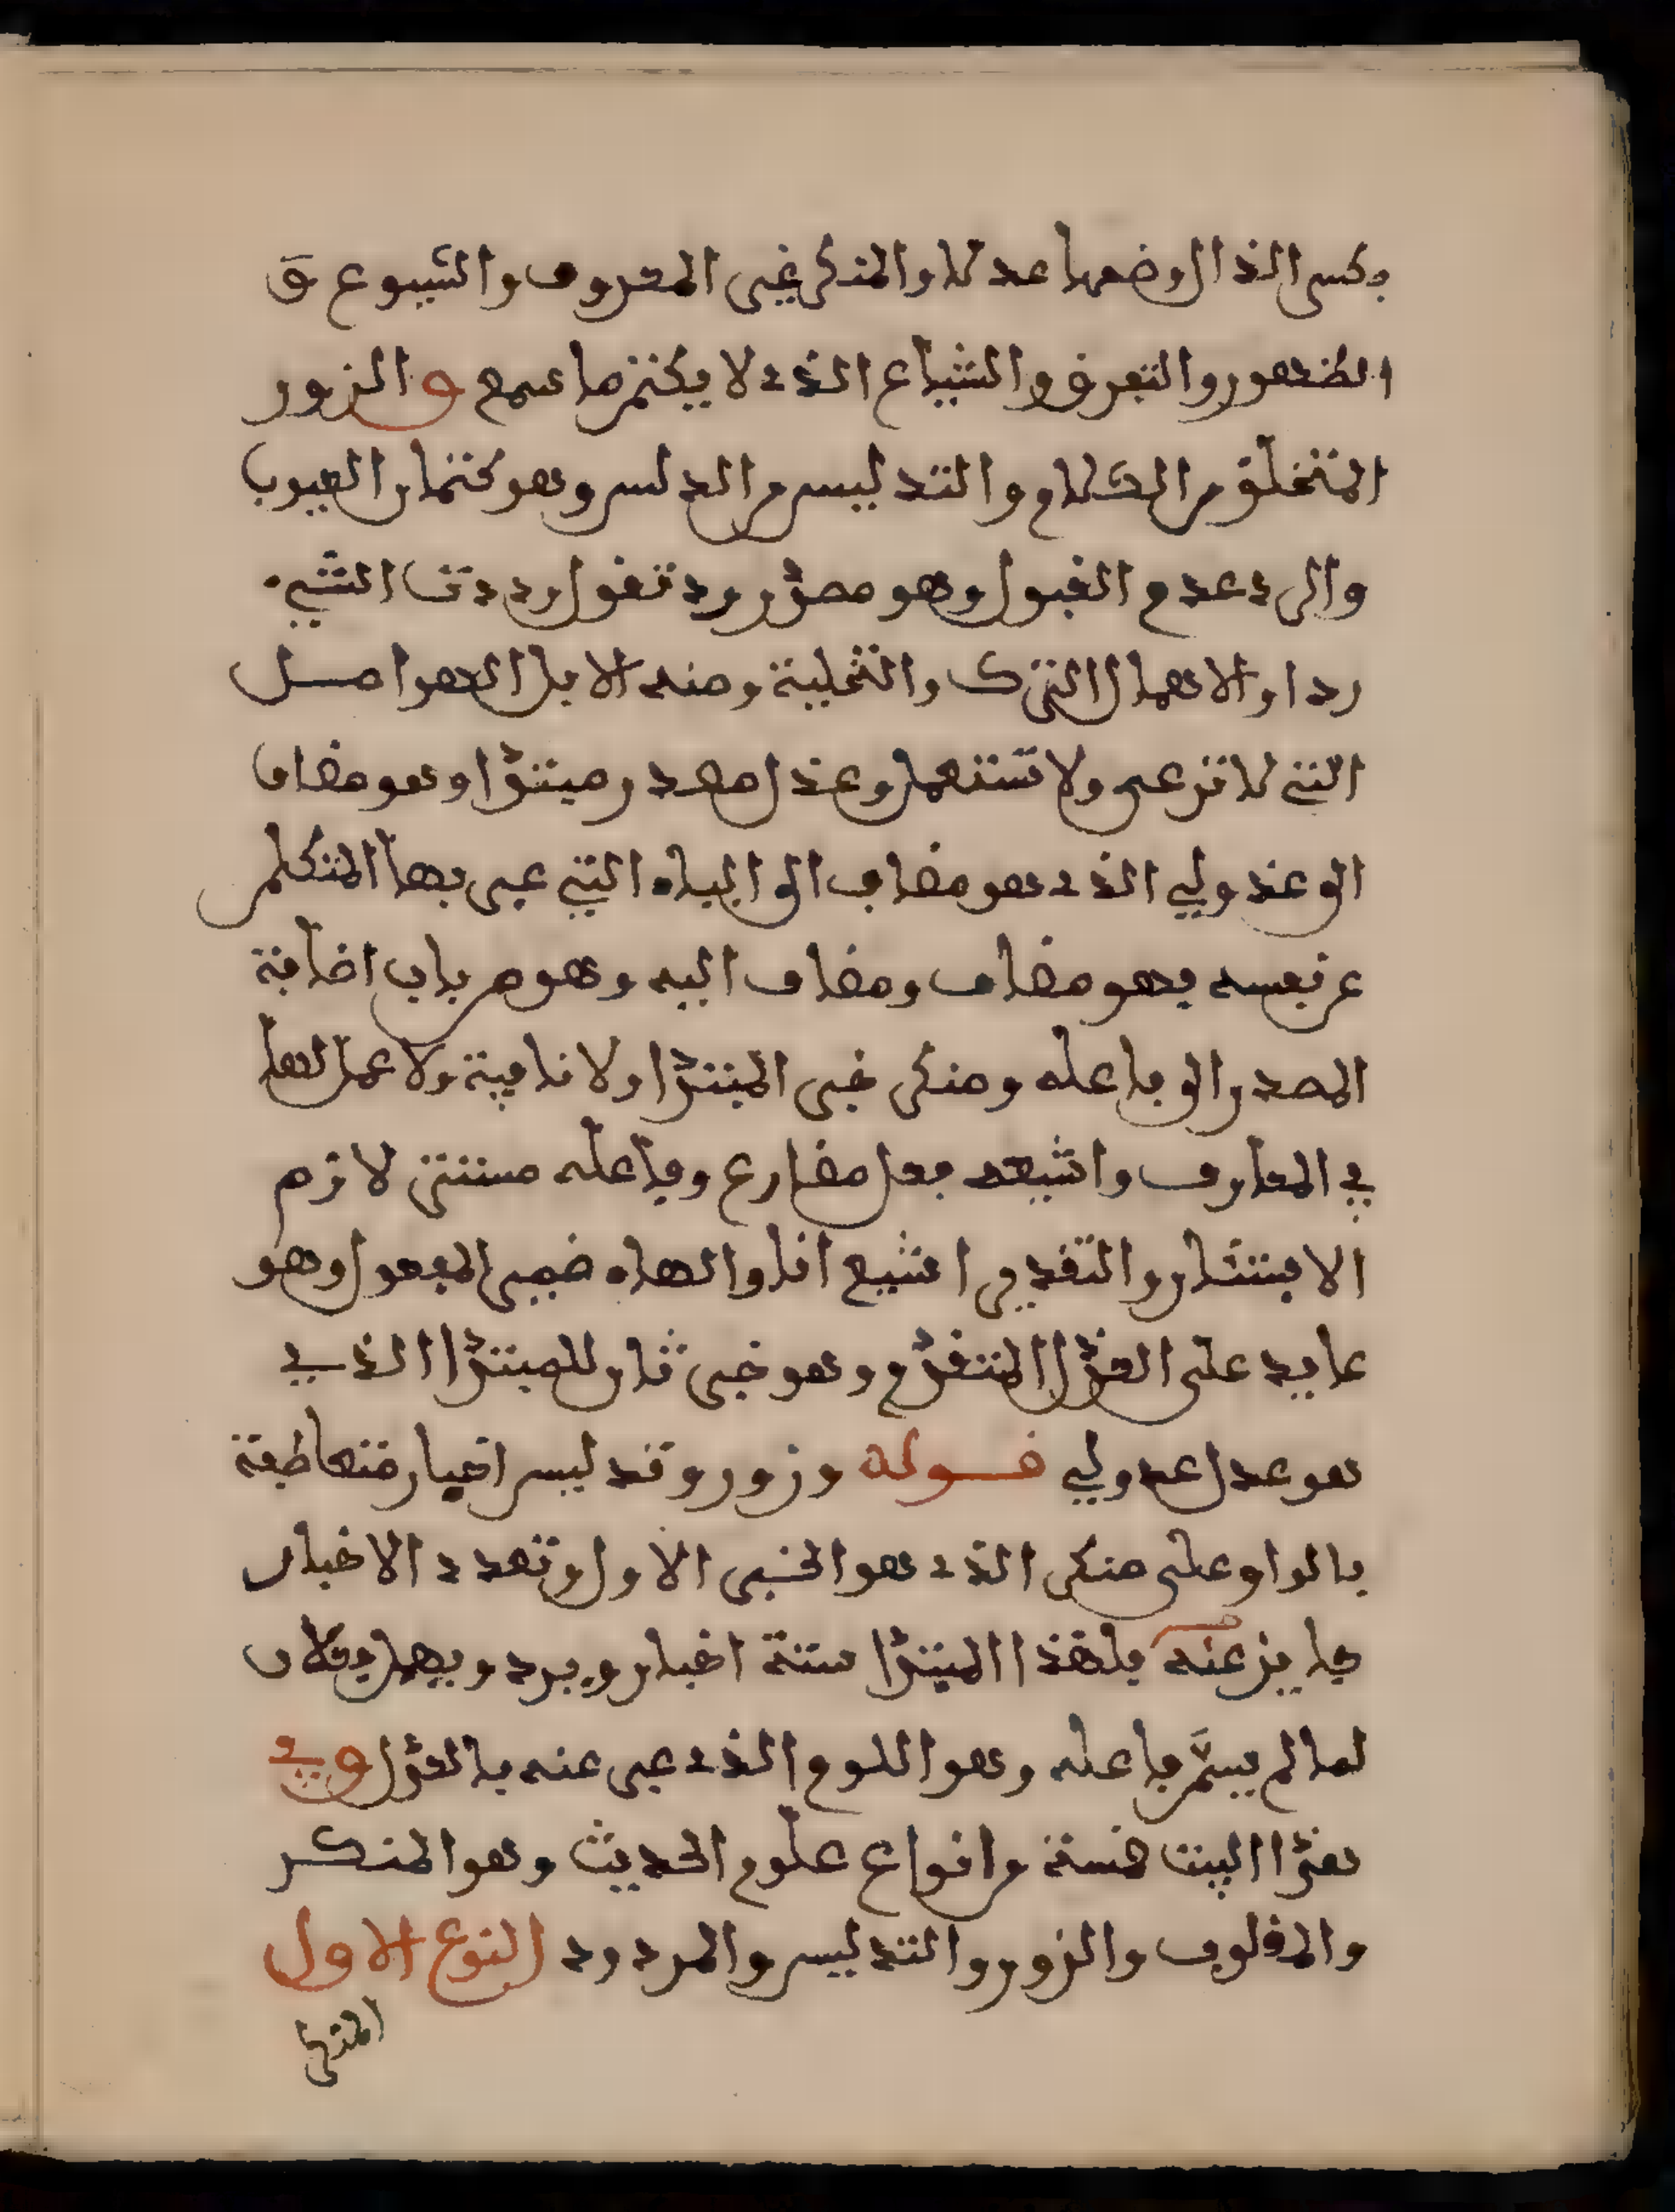 بكسر الذال وضمها عدلا والمنكر غير المعروف والشيوع ق
الظهور والتعرف والشياع الذي لا يكتم ما سمع والزور
المتخلق من الكلام والتدليس من الدلس وهو كتمان العيوب
والرد عدم القبول وهو مصدر رد تقول رددت الشيء
ردا والاهمال الترك والتخلية ومنه الابل الهوامل
التي لا ترعى ولا تستعمل وعذل مصدر مبتدا وهو مضاف
الى عذولي الذي هو مضاف الى الياء التي عبر بها المتكلم
عن نفسه فهو مضاف ومضاف اليه وهو من باب اضافة
المصدر الى فاعله ومنكر خبر المبتدا ولا نافية ولا عمل لها
في المعارف واشيعه فعل مضارع وفاعله مستتر لازم
الاستتار والتقدير اشيع انا والهاء ضمير المفعول وهو
عايد على العذل المتقدم وهو خبر ثان للمبتدا الذي
هو عدل عدولي قوله وزور وتدليس اخبار متعاطفة
بالواو على منكر الذي هو الخبر الاول وتعدد الاخبار
جايز عنه فلهذا المبتدا ستة اخبار ويرد ويهمل فعلان
لما لم يسم فاعله وهو اللوم الذي عبر عنه بالعذل وفي
هذا البيت خمسة من انواع علوم الحديث وهو المنكر
والمقلوب والزور والتدليس والمردود النوع الاول
المنكر